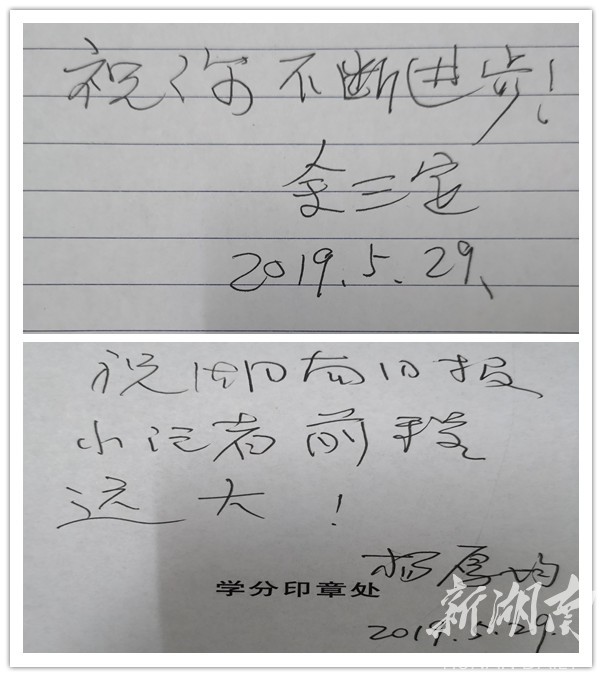 祝你不断进步!
余三定
2019.5.29、
祝湖南日报
小记者前程
远大!
杨厚均
学分印章处
2019.5.29.
新湖南